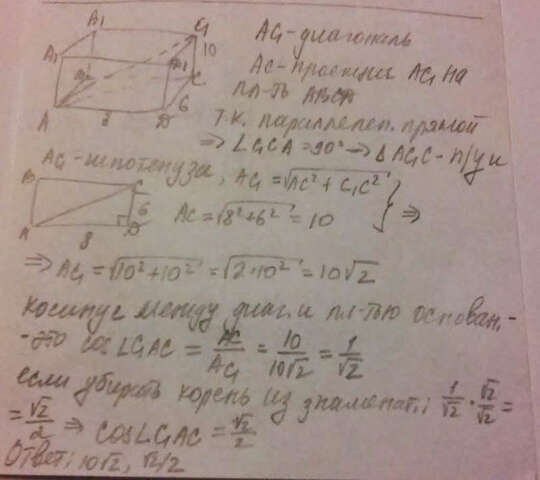 B₁ C₁
A₁ D₁ 10
B C
A 8 D 6
AC₁ - диагональ
AC - проекция AC₁ на
пл-ть ABCD
т.к. параллелеп. прямой
⇒ ∠C₁CA = 90° ⇒ Δ AC₁C - п/у и
AC₁ - гипотенуза, AC₁ = √(AC² + C₁C²)
B C
6
A 8 D
AC = √(8² + 6²) = 10 } ⇒
⇒ AC₁ = √(10² + 10²) = √(2·10²) = 10√2
косинус между диаг. и пл-тью основан. -
- это cos∠C₁AC = AC/AC₁ = 10/10√2 = 1/√2
если убирать корень из знаменат.: 1/√2 · √2/√2 =
= √2/2 ⇒ cos∠C₁AC = √2/2
Ответ: 10√2, √2/2